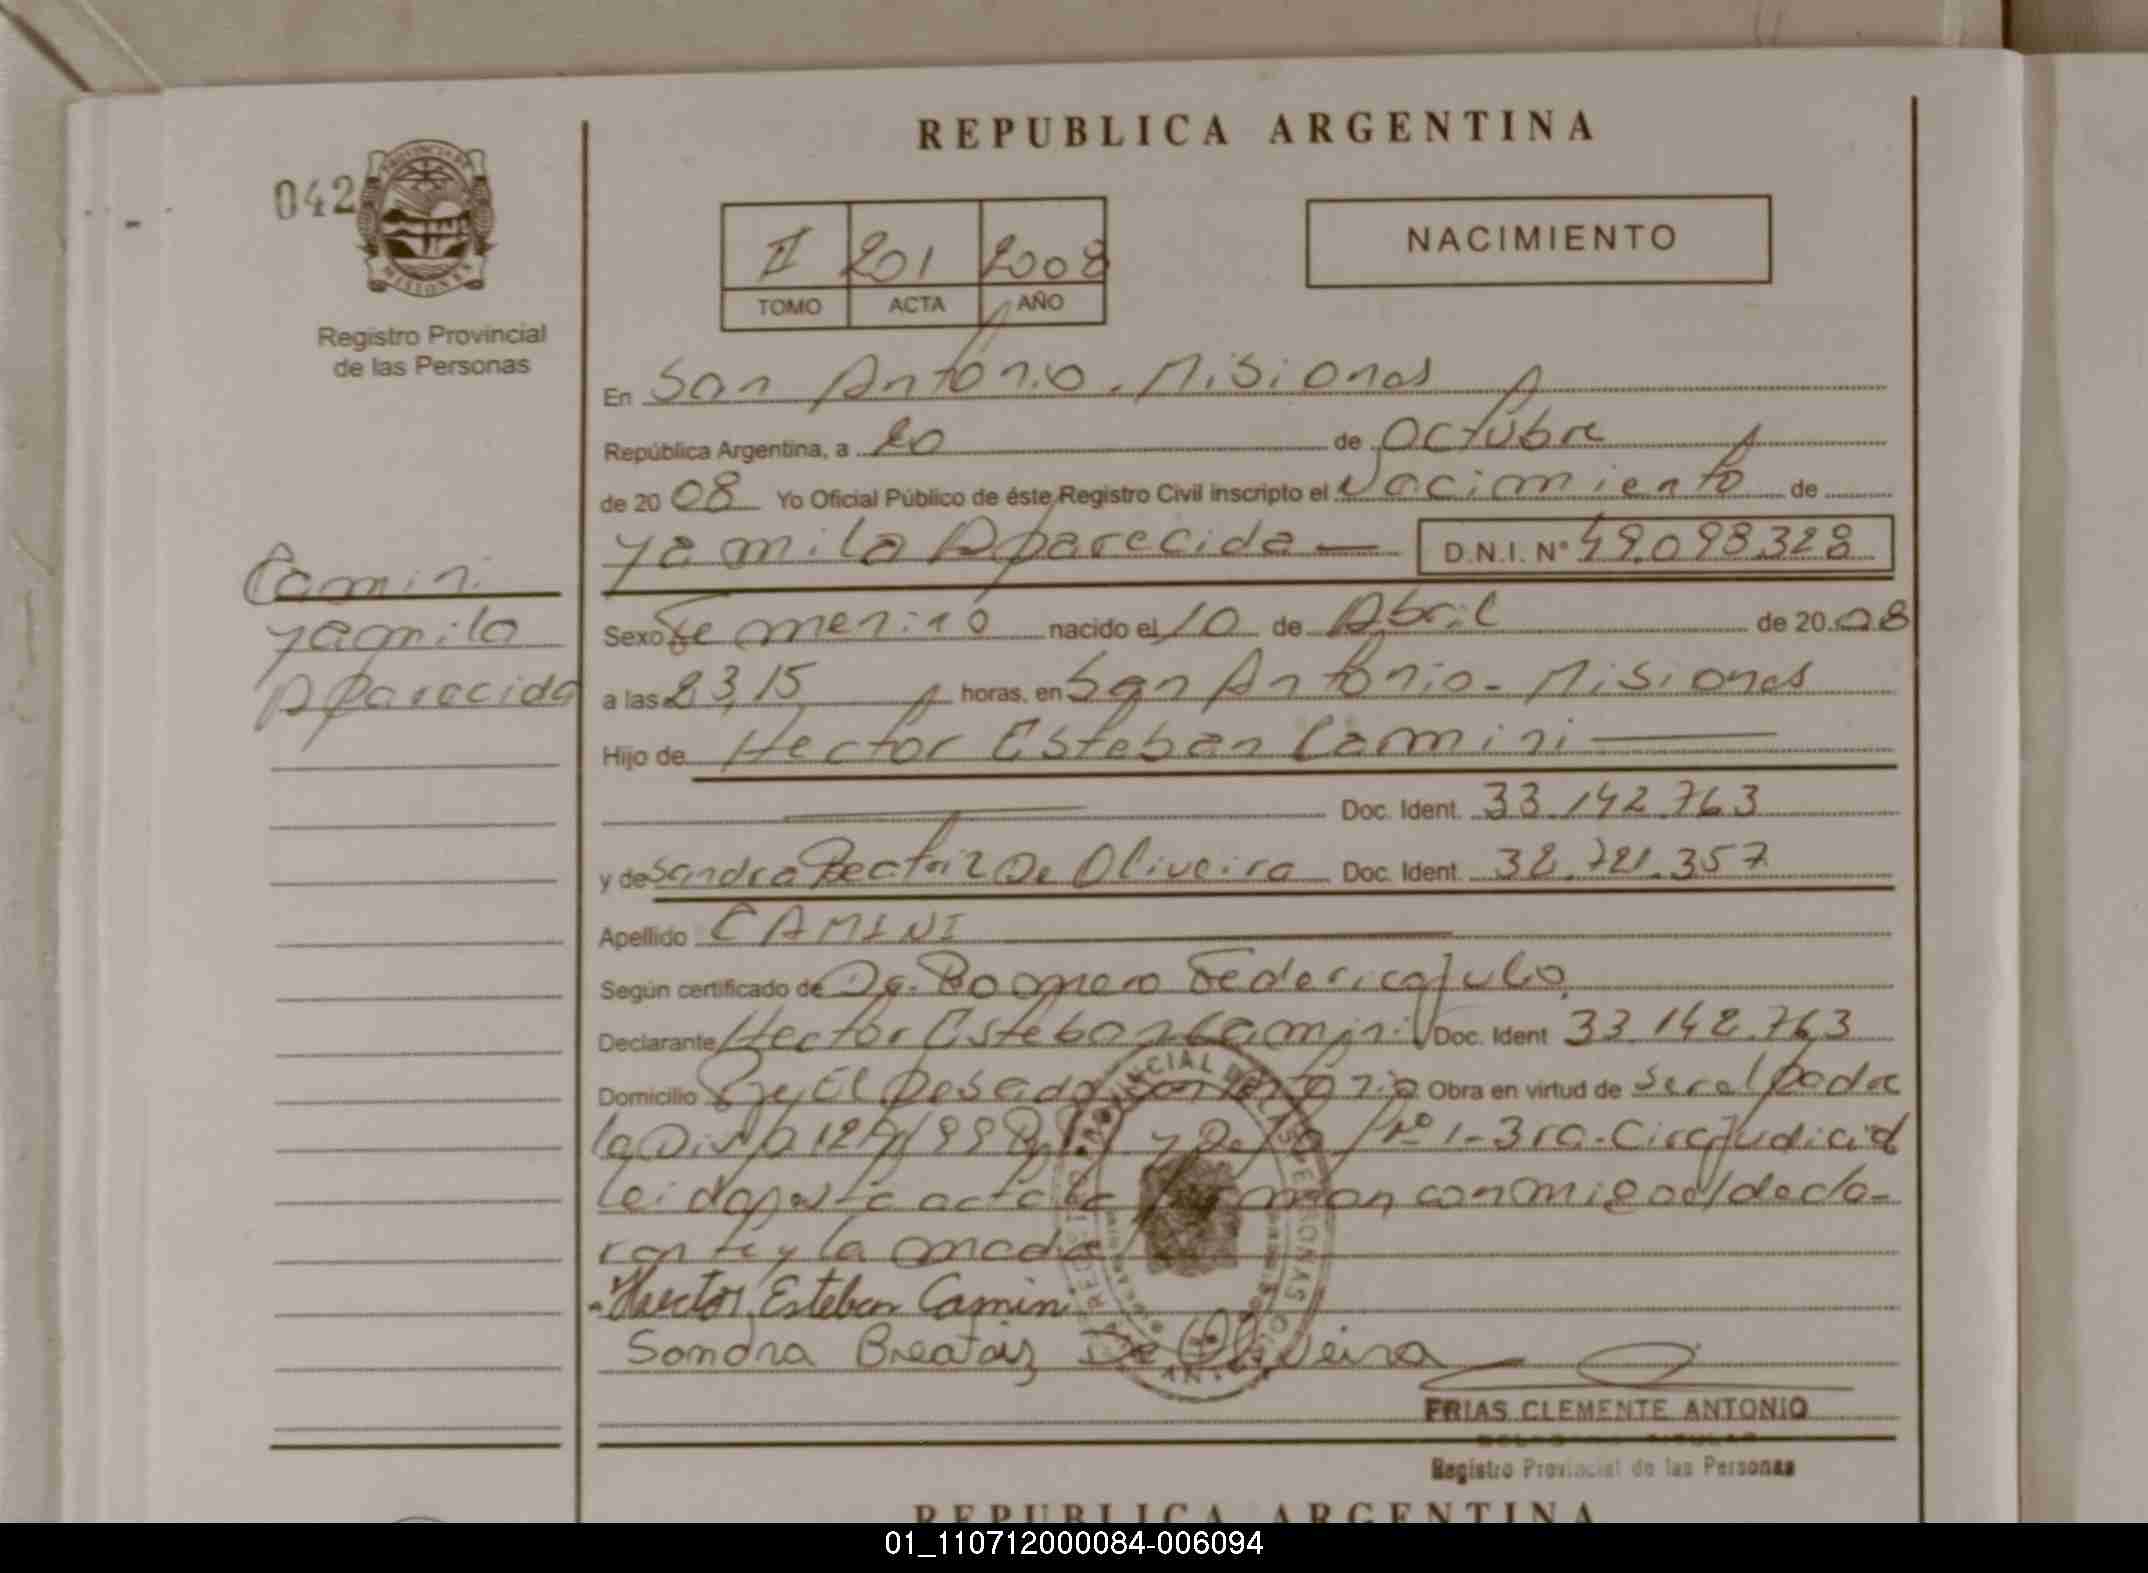 REPUBLICA ARGENTINA
042
PROVINCIA DE MISIONES
II 201 2008
TOMO ACTA AÑO
NACIMIENTO
Registro Provincial
de las Personas
En San Antonio. Misiones
República Argentina, a 20 de Octubre
de 2008 Yo Oficial Público de éste Registro Civil inscripto el Nacimiento de
Yamila Aparecida D.N.I. Nº 49.098.328
Camini
Yamila
Aparecida
Sexo Femenino nacido el 10 de Abril de 2008
a las 23,15 horas, en San Antonio - Misiones
Hijo de Hector Esteban Camini
Doc. Ident. 33.142.763
y de Sandra Beatriz De Oliveira Doc. Ident. 32.721.357
Apellido CAMINI
Según certificado de Dr. Romero Federico Julio
Declarante Hector Esteban Camini Doc. Ident 33.142.763
Domicilio El Pesado San Antonio Obra en virtud de ser el padre
la y De la Nº 1-3ra. Circ Judicial
Leida esta acta la firman conmigo el decla-
rante y la madre
Hector Esteban Camini
Sandra Breatriz De Oliveira
FRIAS CLEMENTE ANTONIO
Registro Provincial de las Personas
REPUBLICA ARGENTINA
01_110712000084-006094